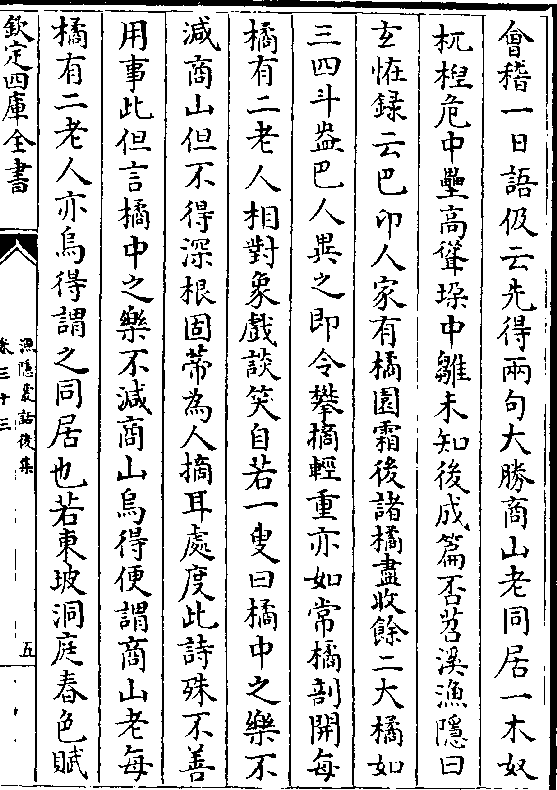 會稽一日語伋云先得兩句大勝商山老同居一木奴
杌桯危中壘高聳垜中雛未知後成篇否苕溪漁隱曰
玄怪録云巴卭人家有橘園霜後諸橘盡收餘二大橘如
三四斗盎巴人異之即令攀摘輕重亦如常橘剖開每
橘有二老人相對象戲談笑自若一叟曰橘中之樂不
減商山但不得深根固蔕為人摘耳處度此詩殊不善
用事此但言橘中之樂不減商山烏得便謂商山老每
橘有二老人亦烏得謂之同居也若東坡洞庭春色賦
欽定四庫全書
漁隱叢話後集
卷三十三
五